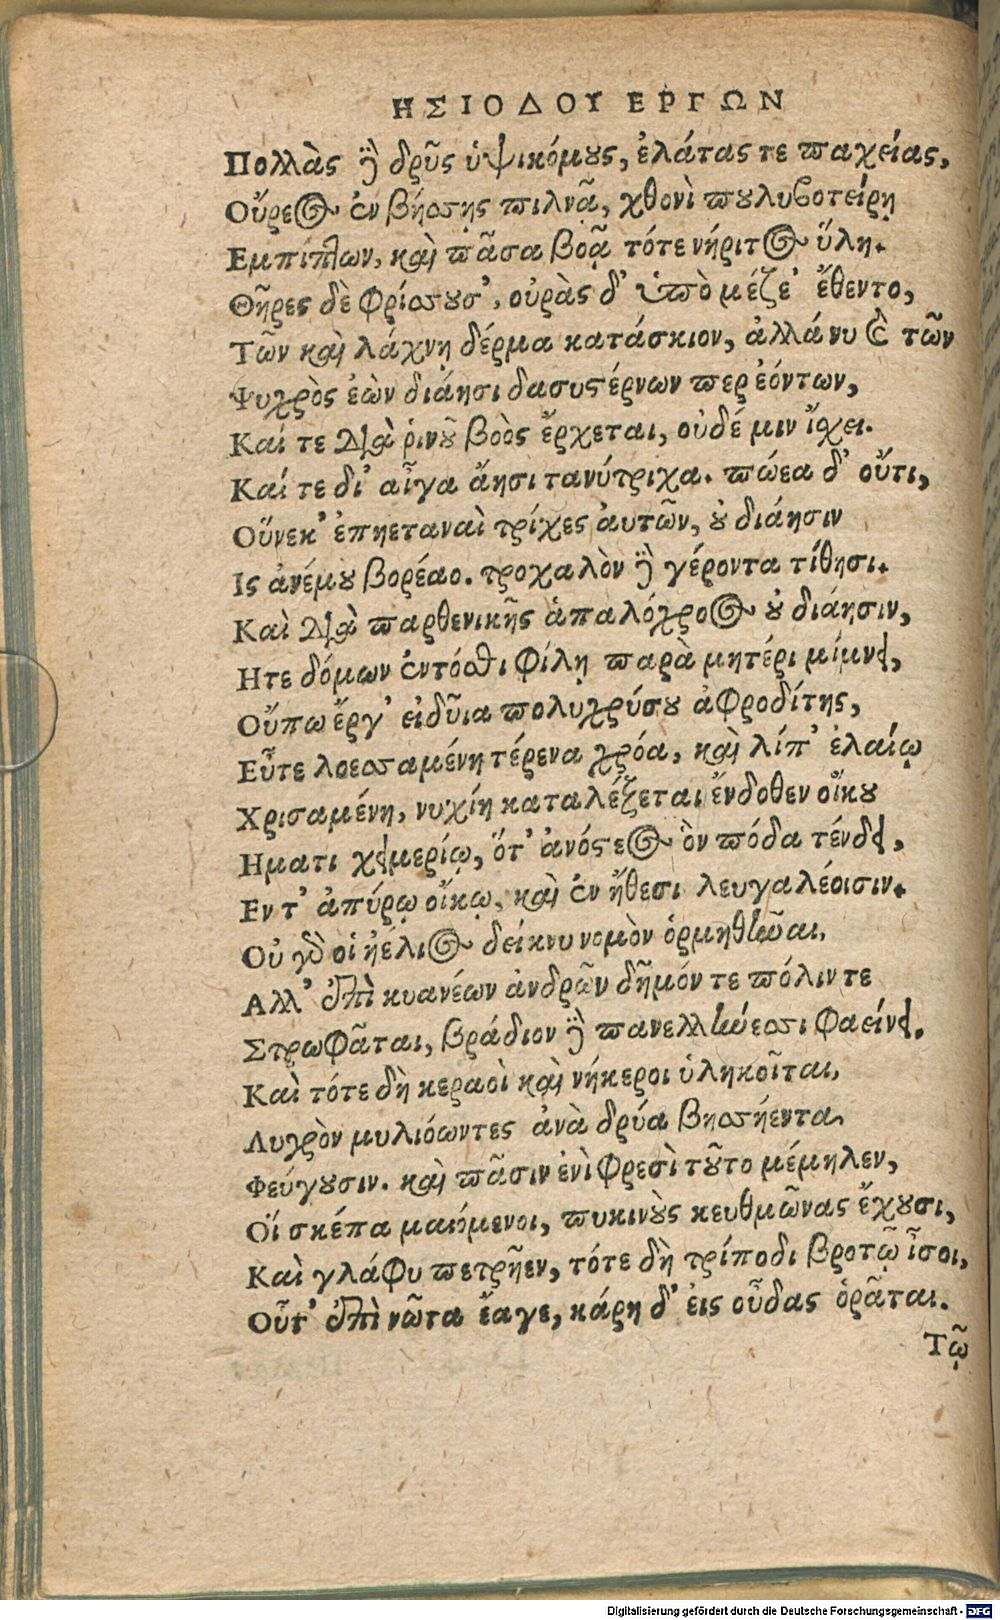 ΗΣΙΟΔΟΥ ΕΡΓΩΝ
Πολλὰς δὲ δρῦς ὑψικόμους, ἐλάτας τε παχείας,
Οὔρεος ἐν βήσσης πιλνᾷ, χθονὶ πουλυβοτείρῃ
Εμπίπτων, καὶ πᾶσα βοᾷ τότε νήριτος ὕλη.
Θῆρες δὲ φρίσσουσ', οὐρὰς δ' ὑπὸ μέζε' ἔθεντο,
Τῶν καὶ λάχνῃ δέρμα κατάσκιον, ἀλλά νυ καὶ τῶν
Ψυχρὸς ἐὼν διάησι δασυστέρνων περ ἐόντων,
Καί τε διὰ ῥινοῦ βοὸς ἔρχεται, οὐδέ μιν ἴσχει.
Καί τε δι' αἶγα ἄησι τανύτριχα. πώεα δ' οὔτι,
Οὕνεκ' ἐπηεταναὶ τρίχες αὐτῶν, οὐ διάησιν
Ις ἀνέμου βορέαο. τροχαλὸν δὲ γέροντα τίθησι.
Καὶ διὰ παρθενικῆς ἁπαλόχροος οὐ διάησιν,
Ητε δόμων ἐντόσθι φίλῃ παρὰ μητέρι μίμνει,
Οὔπω ἔργ' εἰδῦια πολυχρύσου ἀφροδίτης,
Εὖτε λοεσσαμένη τέρενα χρόα, καὶ λίπ' ἐλαίῳ
Χρισαμένη, νυχίη καταλέξεται ἔνδοθεν οἴκου
Ηματι χειμερίῳ, ὅτ' ἀνόστεος ὃν πόδα τένδει,
Εν τ' ἀπύρῳ οἴκῳ, καὶ ἐν ἤθεσι λευγαλέοισιν.
Οὐ γὰρ οἱ ἠέλιος δείκνυ νομὸν ὁρμηθῆναι,
Αλλ' ἐπὶ κυανέων ἀνδρῶν δῆμόν τε πόλιν τε
Στρωφᾶται, βράδιον δὲ πανελλήνεσσι φαείνει.
Καὶ τότε δὴ κεραοὶ καὶ νήκεροι ὑληκοῖται,
Λυγρὸν μυλιόωντες ἀνὰ δρύα βησσήεντα
Φεύγουσιν. καὶ πᾶσιν ἐνὶ φρεσὶ τοῦτο μέμηλεν,
Οἵ σκέπα μαιόμενοι, πυκινοὺς κευθμῶνας ἔχουσι,
Καὶ γλάφυ πετρῆεν, τότε δὴ τρίποδι βροτῷ ἶσοι,
Οὗτ' ἐπὶ νῶτα ἔαγε, κάρη δ' εἰς οὖδας ὁρᾶται.
Τῷ
Digitalisierung gefördert durch die Deutsche Forschungsgemeinschaft - DFG